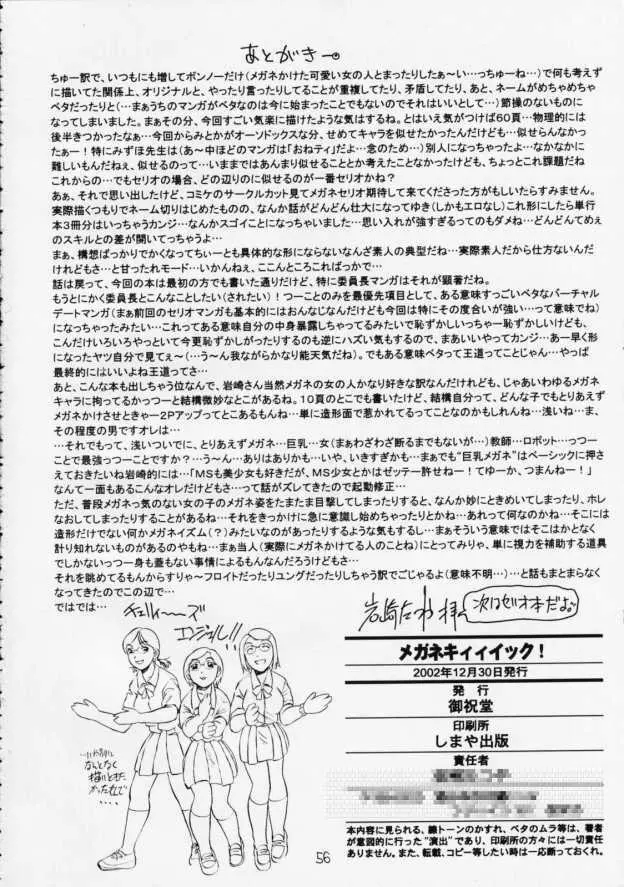 あとがきー
ちゅー訳で、いつもにも増してボンノーだけ(メガネかけた可愛い女の人とまったりしたぁ～い…っちゅーね…)で何も考えず
に描いてた関係上、オリジナルと、やったり言ったりしてることが重複してたり、矛盾してたり、あと、ネームがめちゃめちゃ
ベタだったりと(…まぁうちのマンガがベタなのは今に始まったことでもないのでそれはいいとして…)節操のないものに
なってしまいました。まぁその分、今回すごい気楽に描けたような気はするね。とはいえ気がつけば60頁…物理的には
後半きつかったなぁ…今回からみとかがオーソドックスな分、せめてキャラを似せたかったんだけども…似せらんなかっ
たぁー!特にみずほ先生は(あ～中ほどのマンガは「おねティ」だよ…念のため…)別人になっちゃったよ…なかなかに
難しいもんだねぇ、似せるのって…いままではあんまり似せることとか考えたことなかったけども、ちょっとこれ課題だね
これからの…でもセリオの場合、どの辺りのに似せるのが一番セリオかね?
あぁ、それで思い出したけど、コミケのサークルカット見てメガネセリオ期待して来てくださった方がもしいたらすみません。
実際描くつもりでネーム切りはじめたものの、なんか話がどんどん壮大になってゆき(しかもエロなし)これ形にしたら単行
本3冊分はいっちゃうカンジ…なんかスゴイことになっちゃいました…思い入れが強すぎるってのもダメね…どんどんてめぇ
のスキルとの差が開いてっちゃうよ…
まぁ、構想ばっかりでかくなってちぃーとも具体的な形にならないなんざ素人の典型だね…実際素人だから仕方ないんだ
けれどもさ…と甘ったれモード…いかんねぇ、ここんところこればっかで…
話は戻って、今回の本は最初の方でも書いた通りだけど、特に委員長マンガはそれが顕著だね。
もうとにかく委員長とこんなことしたい(されたい)!つーことのみを最優先項目として、ある意味すっごいベタなバーチャル
デートマンガ(まぁ前回のセリオマンガも基本的にはおんなじなんだけども今回は特にその度合いが強い…って意味でね)
になっちゃったみたい…これってある意味自分の中身暴露しちゃってるみたいで恥ずかしいっちゃー恥ずかしいけども、
こんだけいろいろやっといて今更恥ずかしがったりするのも逆にハズい気もするので、まあいいやってカンジ…あー早く形
になったヤツ自分で見てぇ～(…う～ん我ながらかなり能天気だな)。でもある意味ベタって王道ってことじゃん…やっぱ
最終的にはいいよね王道ってさ…
あと、こんな本も出しちゃう位なんで、岩崎さん当然メガネの女の人かなり好きな訳なんだけれども、じゃあいわゆるメガネ
キャラに拘ってるかっつーと結構微妙なとこがあるね。10頁のとこでも書いたけど、結構自分って、どんな子でもとりあえず
メガネかけさせときゃー2Pアップってとこあるもんね…単に造形面で惹かれてるってことなのかもしれんね…浅いね…ま、
その程度の男ですオレは…
…それでもって、浅いついでに、とりあえずメガネ…巨乳…女(まぁわざわざ断るまでもないが…)教師…ロボット…っつー
ことで最強っつーことですか?…う～ん…ありはありかも…いや、いきすぎかも…まぁでも“巨乳メガネ”はベーシックに押さ
えておきたいね岩崎的には…「MSも美少女も好きだが、MS少女とかはゼッテー許せねー!てゆーか、つまんねー!」
なんて一面もあるこんなオレだけどもさ…って話がズレてきたので起動修正…
ただ、普段メガネっ気のない女の子のメガネ姿をたまたま目撃してしまったりすると、なんか妙にときめいてしまったり、ホレ
なおしてしまったりすることがあるね…それをきっかけに急に意識し始めちゃったりとかね…あれって何なのかね…そこには
造形だけでない何かメガネイズム(?)みたいなのがあったりするような気もするし…まぁそういう意味ではそこはかとなく
計り知れないものがあるのやもね…まぁ当人(実際にメガネかけてる人のことね)にとってみりゃ、単に視力を補助する道具
でしかないっつー身も蓋もない事情によるもんなんだろうけどもさ…
それを眺めてるもんからすりゃ～フロイトだったりユングだったりしちゃう訳でごじゃるよ(意味不明…)…と話もまとまらなく
なってきたのでこの辺で…
ではでは…
岩崎たつわ 拝
次はゼオ本だよ
チェリィ～～ズ
エンジェル!!
なんとなく
描いときた
かったので
・・・・
メガネキィィイック!
2002年12月30日発行
発 行
御祝堂
印刷所
しまや出版
責任者
本内容に見られる、線トーンのかすれ、ベタのムラ等は、著者
が意図的に行った“演出”であり、印刷所の方々には一切責任
ありません。また、転載、コピー等したい時は一応断っておくれ。
56